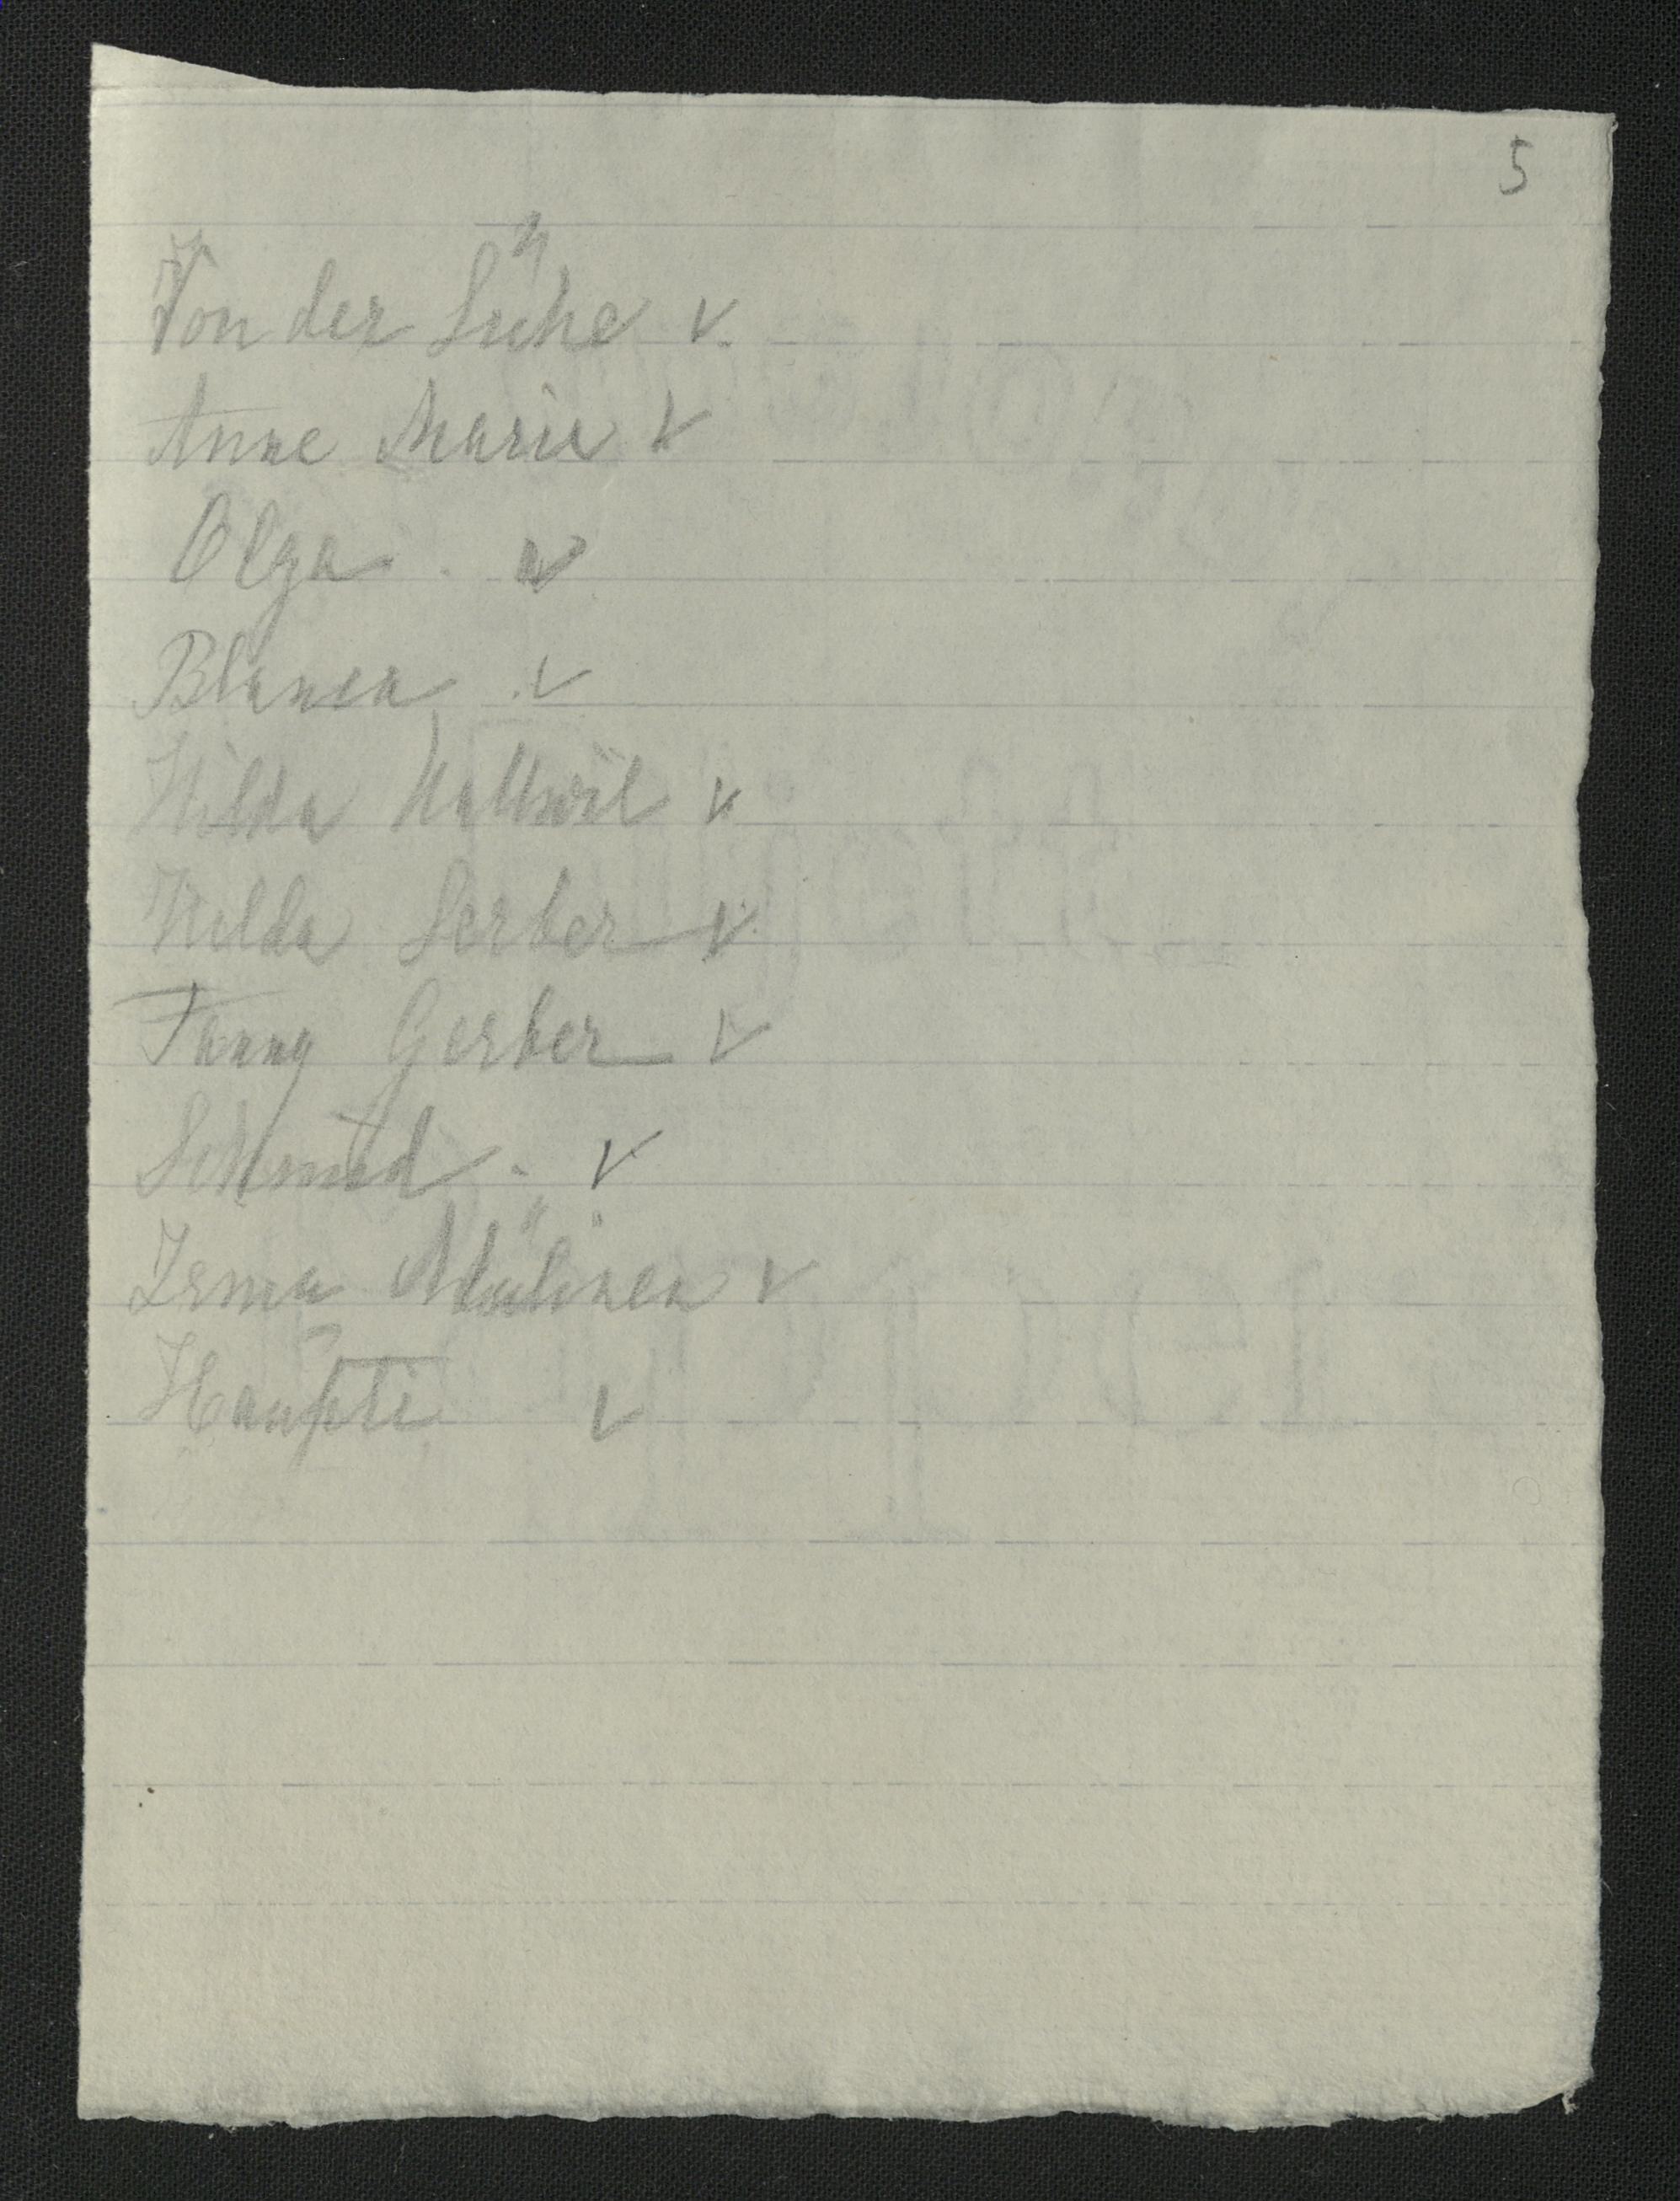 5
Von der Lühe ✓
Anne Marie ✓
Olga ✓
Blanca ✓
Hilda Hallwil ✓
Hilda Gerber ✓
Fanny Gerber ✓
Schmid ✓
Irma Mülinen ✓
Haupti ✓